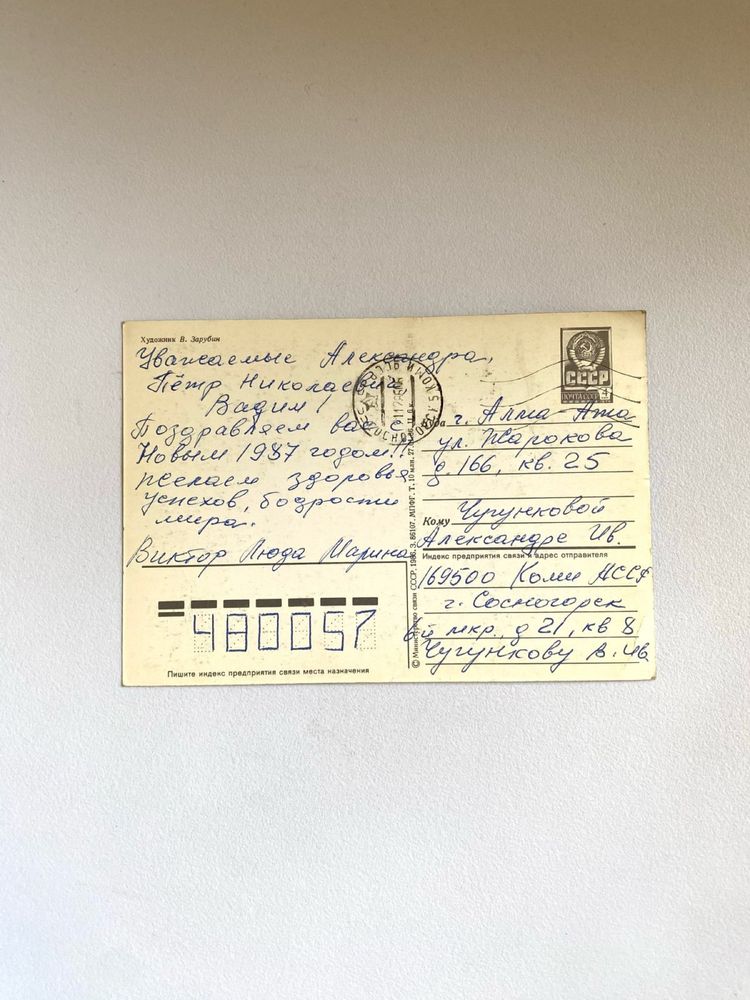 Художник В. Зарубин
Уважаемые Александра,
Пётр Николаевич
Вадим!
Поздравляем вас
Новым 1987 годом!!
Желаем здоровья
успехов, бодрости
мира.
Виктор Люда Марина
480057
Пишите индекс предприятия связи места назначения
СССР
ПОЧТА СССР
Куда г. Алма-Ата
ул. Жарокова
д. 166, кв. 25
Кому Чугунковой
Александре Ив.
Индекс предприятия связи и адрес отправителя
169500 Коми АССР
г. Сосногорск
6й мкр., д 21, кв 8
Чугункову В. Ив
© Министерство связи СССР, 1986, З. 86107, МПФГ, Т. 10 млн.